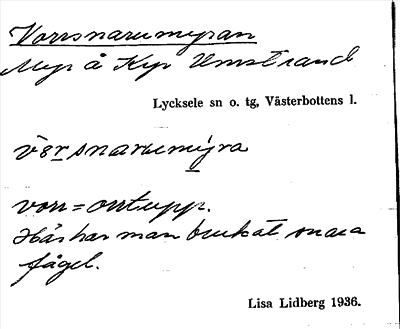 Vorrsnarumyran
Myr å Krp Umstrand
Lycksele sn o. tg, Västerbottens l.
vörsnarumyra
vorr = orrtupp.
Här har man brukat snara
fågel.
Lisa Lidberg 1936.